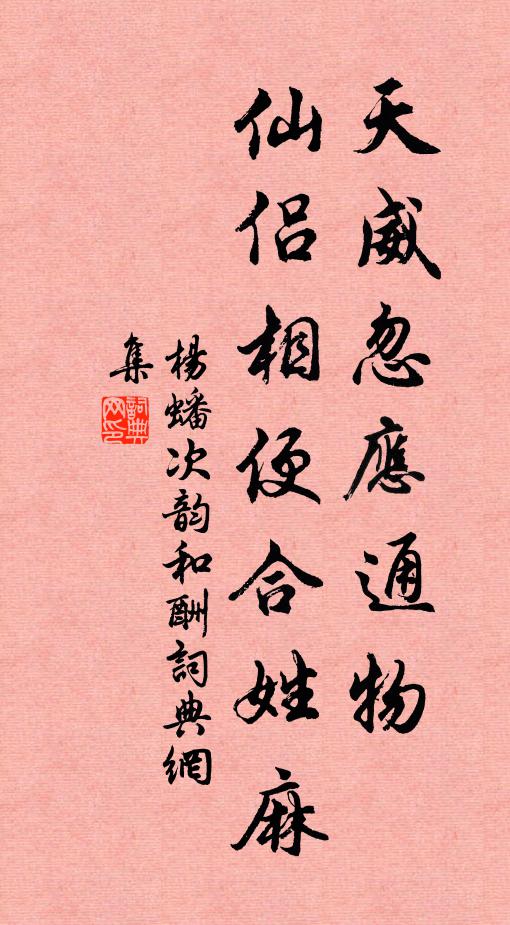 天威忽應通物
仙侶相便合姓麻
楊蟠次韵和酬詞典網
集
詞典
网印